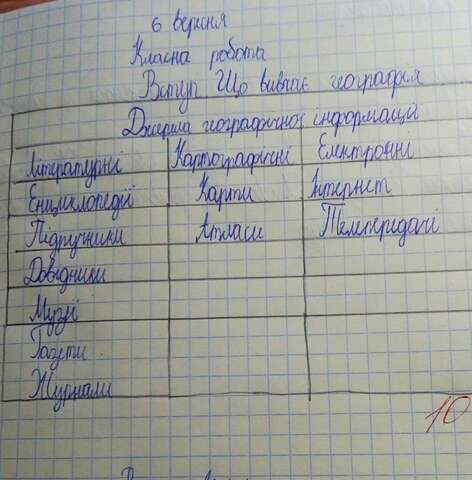 6 вересня
Класна робота
Вступ Що вивчає географія
Джерела географічної інформації
Літературні Картографічні Електронні
Енциклопедії Карти Інтернет
Підручники Атласи Телепередачі
Довідники
Музеї
Газети
Журнали
10